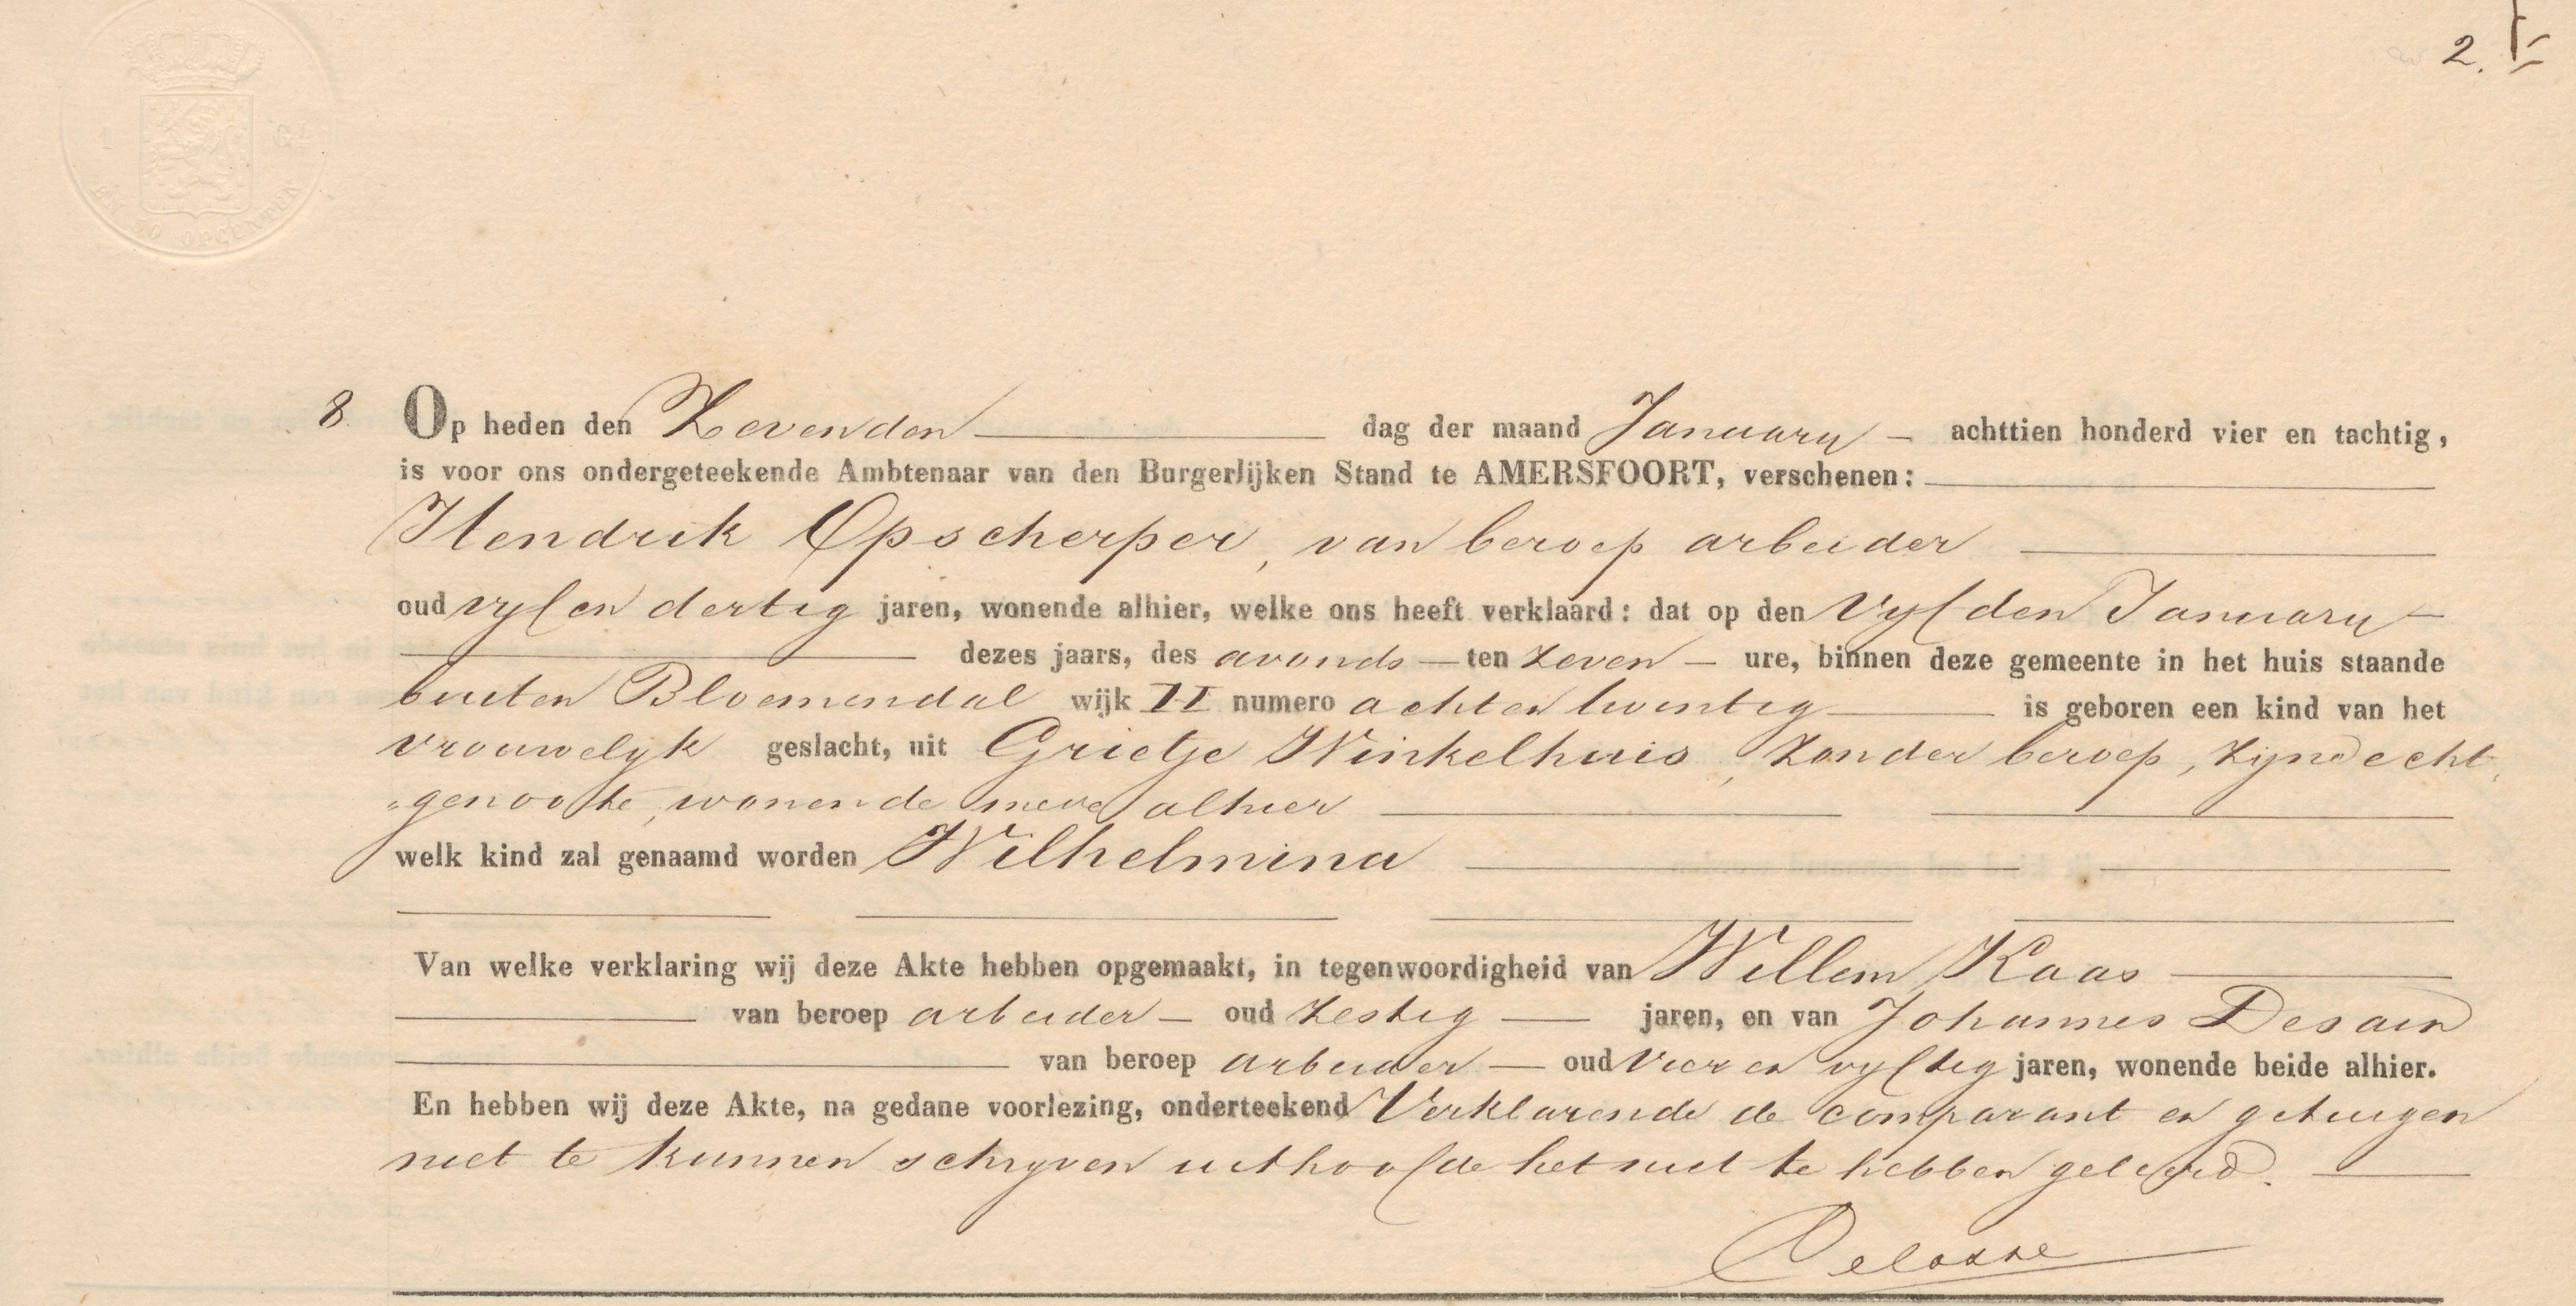 2.
EN 50 OPCENTEN
8 Op heden den Zevenden dag der maand January achttien honderd vier en tachtig,
is voor ons ondergeteekende Ambtenaar van den Burgerlijken Stand te AMERSFOORT, verschenen:
Hendrik Opscherper, van beroep arbeider
oud vyf en dertig jaren, wonende alhier, welke ons heeft verklaard: dat op den Vyfden January
dezes jaars, des avonds ten zeven ure, binnen deze gemeente in het huis staande
buiten Bloemendal wijk II numero acht en twintig is geboren een kind van het
vrouwelyk geslacht, uit Grietje Winkelhuis, zonder beroep, zijne echt
„genoote, wonende mede alhier
welk kind zal genaamd worden Wilhelmina
Van welke verklaring wij deze Akte hebben opgemaakt, in tegenwoordigheid van Willem Kaas
van beroep arbeider oud zestig jaren, en van Johannes Desain
van beroep arbeider oud vier en vyftig jaren, wonende beide alhier.
En hebben wij deze Akte, na gedane voorlezing, onderteekend Verklarende de comparant en getuigen
niet te kunnen schryven uithoofde het niet te hebben geleerd.